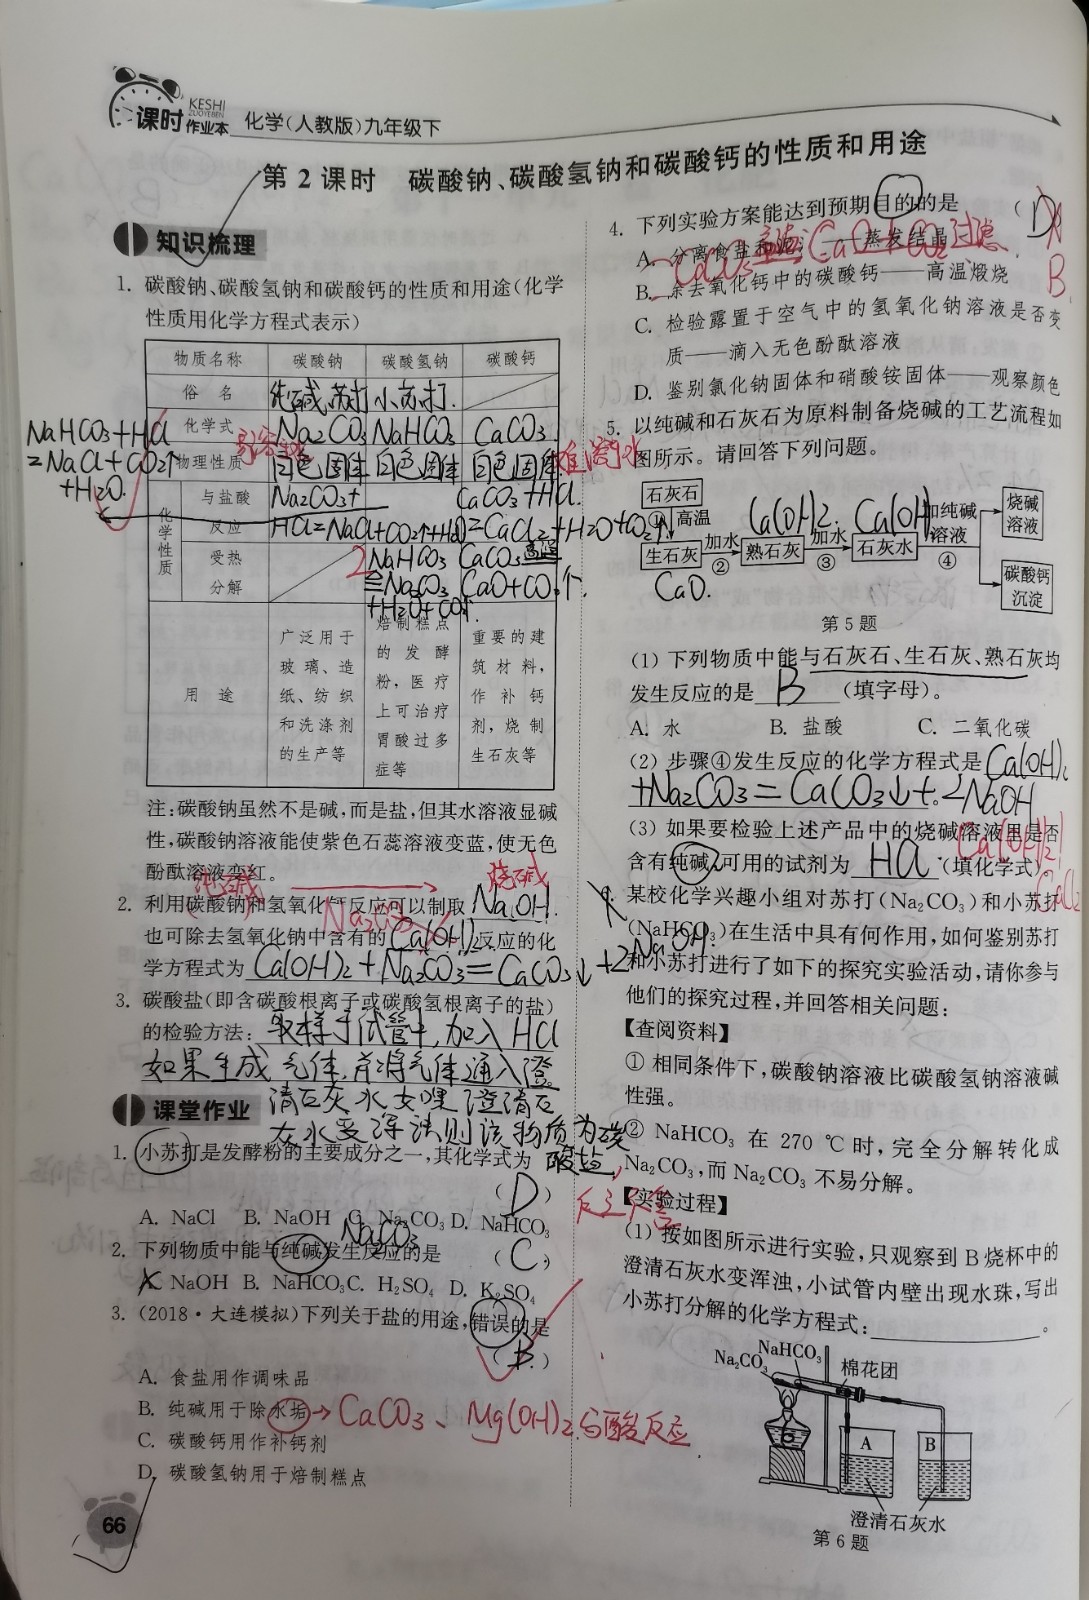 课时
KESHI
ZUOYEBEN
作业本
化学(人教版)九年级下
第 2 课时 碳酸钠、碳酸氢钠和碳酸钙的性质和用途
知识梳理
1. 碳酸钠、碳酸氢钠和碳酸钙的性质和用途(化学
性质用化学方程式表示)
物质名称 碳酸钠 碳酸氢钠 碳酸钙
俗 名 纯碱、苏打 小苏打.
化学式 Na₂CO₃ NaHCO₃ CaCO₃
NaHCO₃+HCl
=NaCl+CO₂↑
+H₂O.
物理性质 白色固体 白色固体 白色固体
化学性质
与盐酸
反应
Na₂CO₃+
HCl=NaCl+CO₂↑+H₂O
CaCO₃+HCl.
=CaCl₂+H₂O+CO₂↑.
受热
分解
2 NaHCO₃
≙Na₂CO₃
+H₂O+CO₂↑.
CaCO₃ 高温
CaO+CO₂↑.
用 途
广泛用于
玻璃、造
纸、纺织
和洗涤剂
的生产等
焙制糕点
的发酵
粉,医疗
上可治疗
胃酸过多
症等
重要的建
筑材料,
作补钙
剂,烧制
生石灰等
注:碳酸钠虽然不是碱,而是盐,但其水溶液显碱
性,碳酸钠溶液能使紫色石蕊溶液变蓝,使无色
酚酞溶液变红。
纯碱 烧碱
2. 利用碳酸钠和氢氧化钙反应可以制取 NaOH.
Na₂CO₃
也可除去氢氧化钠中含有的 Ca(OH)₂ 反应的化
学方程式为 Ca(OH)₂+Na₂CO₃=CaCO₃↓+2NaOH.
3. 碳酸盐(即含碳酸根离子或碳酸氢根离子的盐)
的检验方法: 取样于试管中,加入 HCl
如果生成气体,并将气体通入澄
清石灰水如果澄清石
灰水变浑浊则该物质为碳
酸盐,
课堂作业
1. 小苏打是发酵粉的主要成分之一,其化学式为
( D )
A. NaCl B. NaOH C. Na₂CO₃ D. NaHCO₃
Na₂CO₃
2. 下列物质中能与纯碱发生反应的是 ( C )
A. NaOH B. NaHCO₃ C. H₂SO₄ D. K₂SO₄
3. (2018·大连模拟)下列关于盐的用途,错误的是
( B )
A. 食盐用作调味品
B. 纯碱用于除水垢→CaCO₃、Mg(OH)₂.与酸反应
C. 碳酸钙用作补钙剂
D. 碳酸氢钠用于焙制糕点
66
4. 下列实验方案能达到预期目的的是 ( D )
B
A. 分离食盐和泥沙——蒸发结晶 过滤
CaCO₃ 高温 CaO+CO₂
B. 除去氧化钙中的碳酸钙——高温煅烧
C. 检验露置于空气中的氢氧化钠溶液是否变
质——滴入无色酚酞溶液
D. 鉴别氯化钠固体和硝酸铵固体——观察颜色
5. 以纯碱和石灰石为原料制备烧碱的工艺流程如
图所示。请回答下列问题。
石灰石
① 高温
生石灰 加水 ② 熟石灰 加水 ③ 石灰水 加纯碱 溶液 ④
CaO. Ca(OH)₂. Ca(OH)
烧碱
溶液
碳酸钙
沉淀
第 5 题
(1) 下列物质中能与石灰石、生石灰、熟石灰均
发生反应的是 B (填字母)。
A. 水 B. 盐酸 C. 二氧化碳
(2) 步骤④发生反应的化学方程式是 Ca(OH)₂
+Na₂CO₃=CaCO₃↓+2NaOH
(3) 如果要检验上述产品中的烧碱溶液里是否
含有纯碱,可用的试剂为 HCl (填化学式)
Ca(OH)₂!
CaCl₂
6. 某校化学兴趣小组对苏打(Na₂CO₃)和小苏打
(NaHCO₃)在生活中具有何作用,如何鉴别苏打
和小苏打进行了如下的探究实验活动,请你参与
他们的探究过程,并回答相关问题:
【查阅资料】
① 相同条件下,碳酸钠溶液比碳酸氢钠溶液碱
性强。
② NaHCO₃ 在 270 ℃时,完全分解转化成
Na₂CO₃,而 Na₂CO₃ 不易分解。
【实验过程】
(1) 按如图所示进行实验,只观察到 B 烧杯中的
澄清石灰水变浑浊,小试管内壁出现水珠,写出
小苏打分解的化学方程式:。
Na₂CO₃ NaHCO₃ 棉花团
A B
澄清石灰水
第 6 题